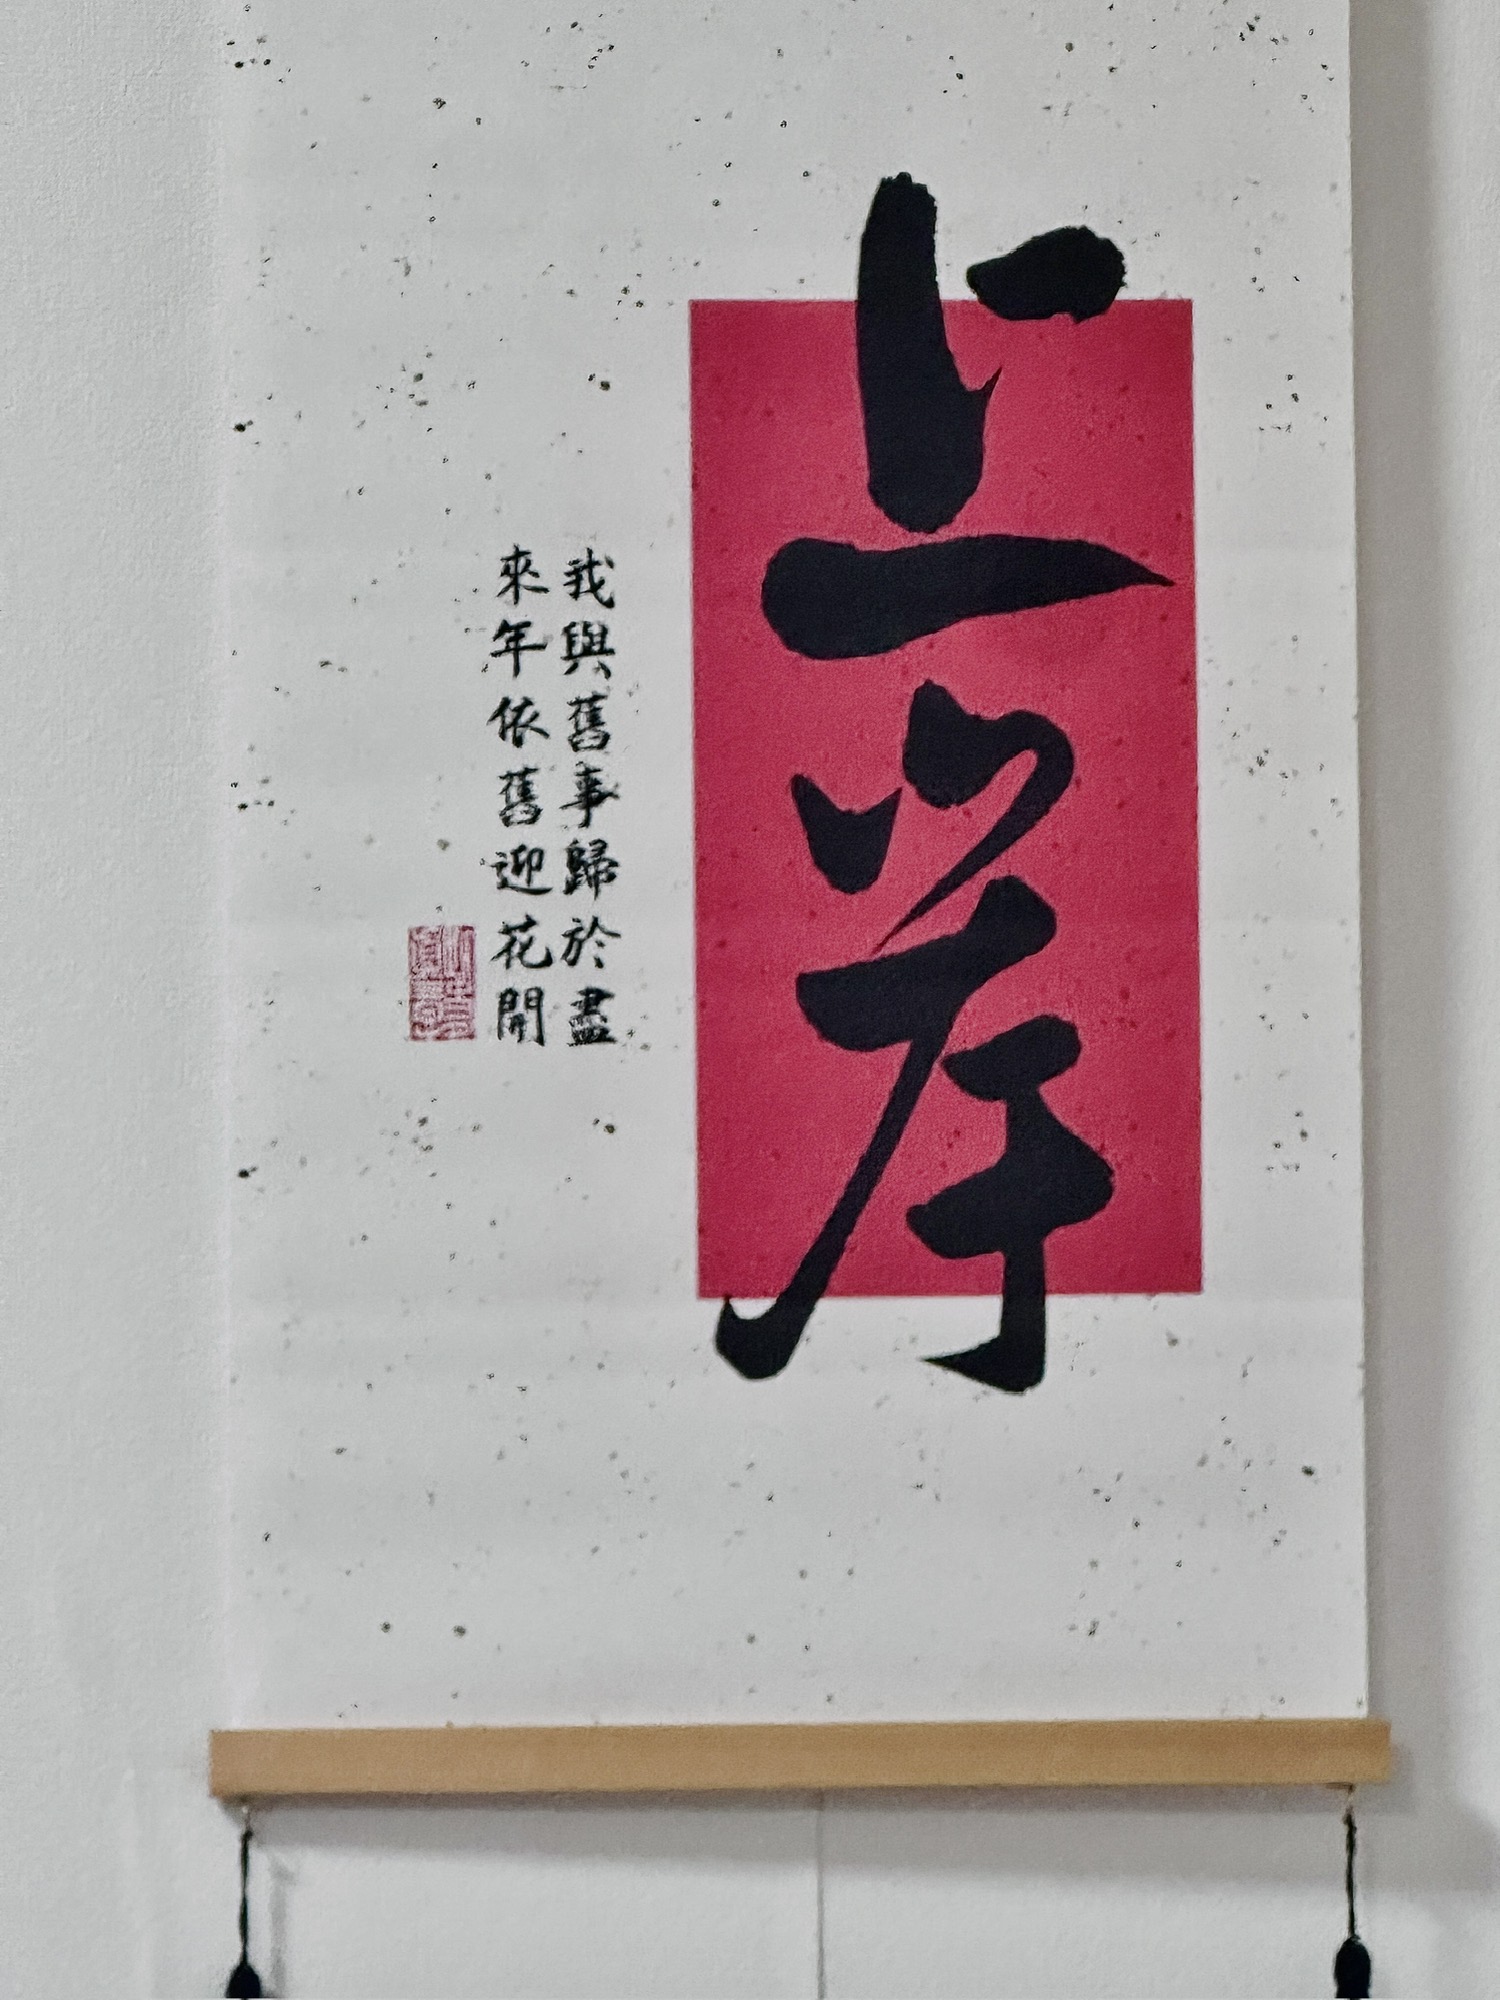 上岸
我與舊事歸於盡
來年依舊迎花開